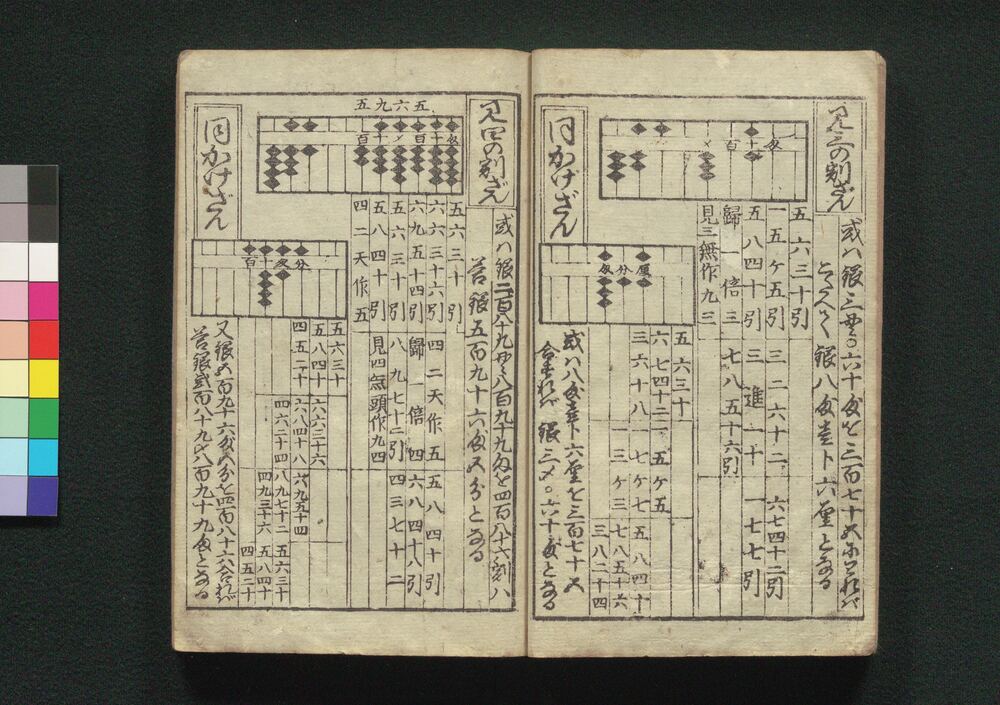 見三の割ざん
或ハ銀三〆〇六十匁を三百七十五にわれバ
銀八匁壱分六厘となる
十匁
百
〆
五六三十引
一五ヶ五引 三二六十二 六七四十二引
五八四十引 三進一十 一七七引
歸一倍三 七八五十六引
見三無作九三
同かけざん
厘
分
匁
五六三十
六七四十二 五ヶ五
三六十八 一七ヶ七 五八四十
一三ヶ三 七八五十六
三八二十四
或ハ八匁壱分六厘を三百七十五
合すれバ銀三〆〇六十匁となる
見四の割ざん
或ハ銀二百八十九〆八百九十九匁を四百八十六ニ割バ
答銀五百九十六匁五分となる
五六九五
匁
十
百
〆
十
百
五六三十引
六六三十六引 四二天作五 五八四十引
六九五十四引 歸一倍四 六八四十八引
五六三十引 八九七十二引 四三七十二
五八四十引 見四無頭作九四
四二天作五
同かけざん
分
匁
十
百
五六三十
五八四十 六六三十六
四五二十 六八四十八 六九五十四
四六二十四 八九七十二 五六三十
四九三十六 五八四十
四五二十
又銀五百九十六匁五分を四百八十六合すれバ
答銀弐百八十九〆八百九十九匁となる